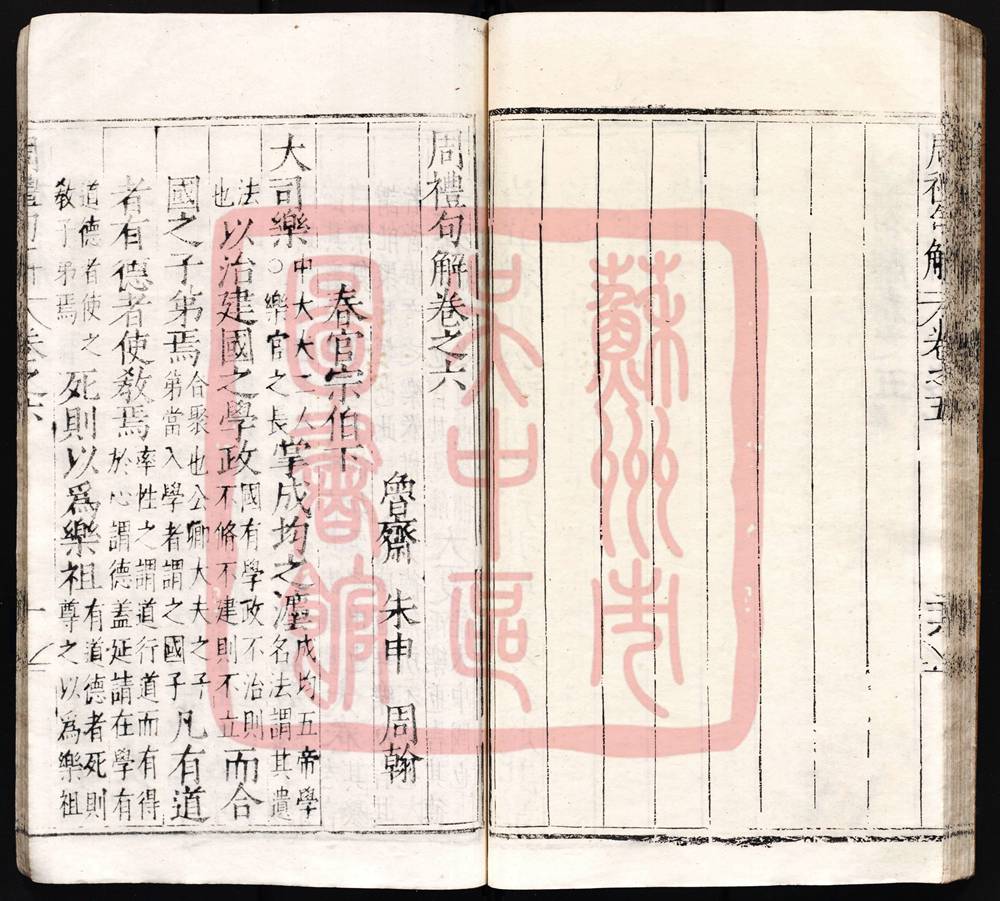 周禮句解卷之五
蘇州市
吳中區
圖書館
周禮句解卷之六
魯齋 朱申 周翰
春官宗伯下
大司樂中大夫二人○樂官之長掌成均之灋成均五帝學名法謂其遺
法也以治建國之學政國有學政不治則不脩不建則不立而合
國之子弟焉合聚也公卿大夫之子弟當入學者謂之國子凡有道
者有德者使教焉率性之謂道行道而有得於心謂德蓋延請在學有
道德者使之教子弟焉死則以爲樂祖有道德者死則尊之以爲樂祖
卷之六